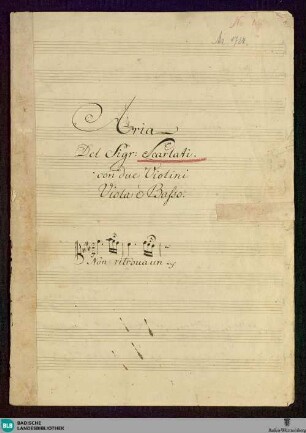 Aria
Del Sigr: Scarlati.
con due Violini
Viola è Basso.
Non ritroua un
BLB
BADISCHE
LANDESBIBLIOTHEK
Baden-Württemberg